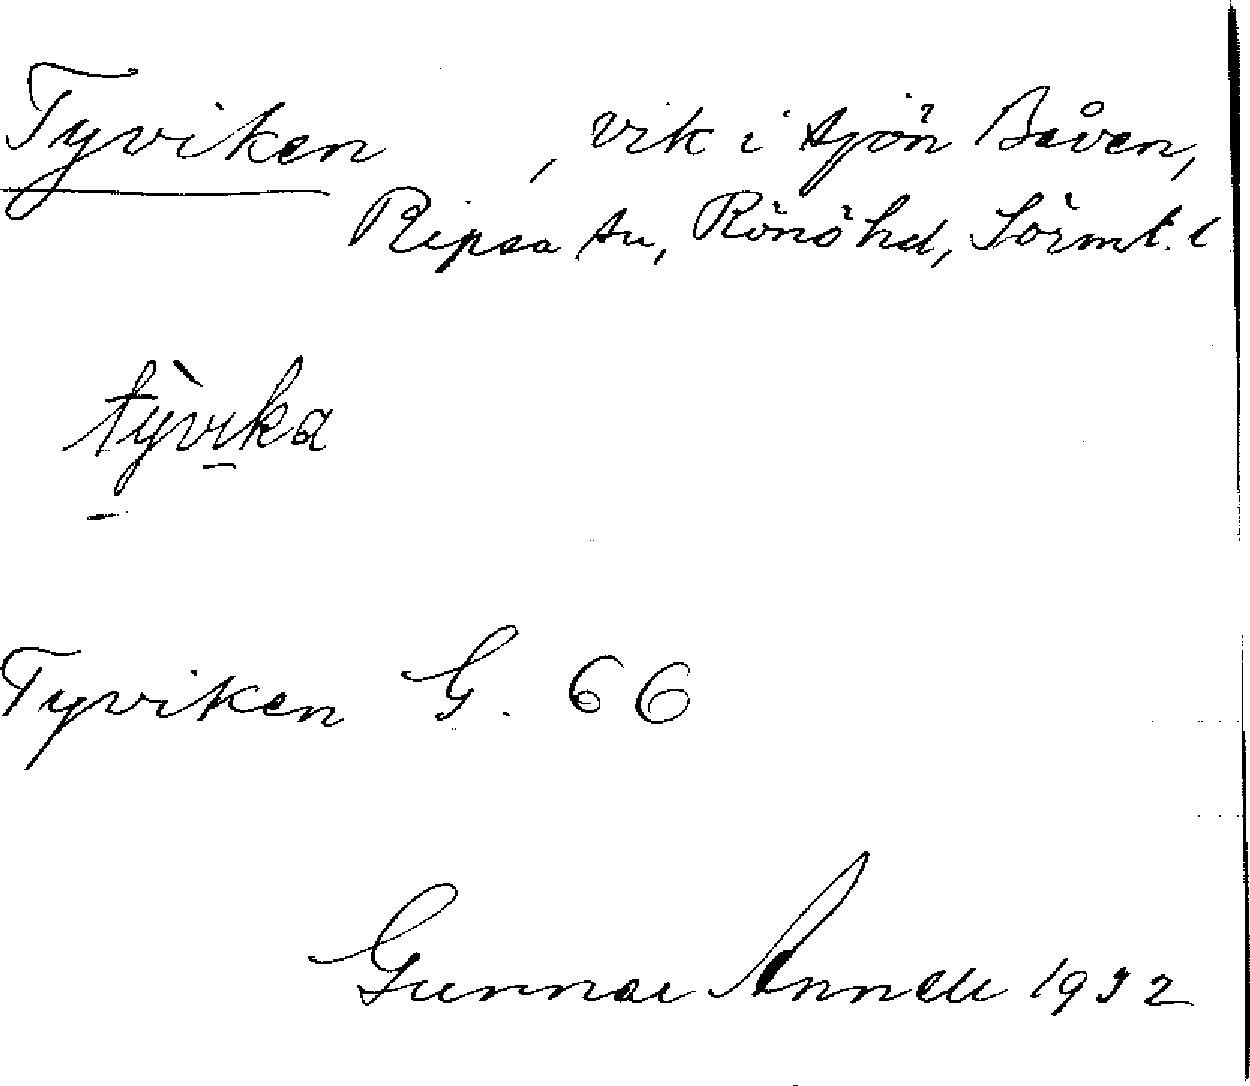 Tyviken, vik i sjön Båven,
Ripsa sn, Rönö hd, Sörml. l
tỳ̖vi̱ka
Tyviken G. 66
Gunnar 1932